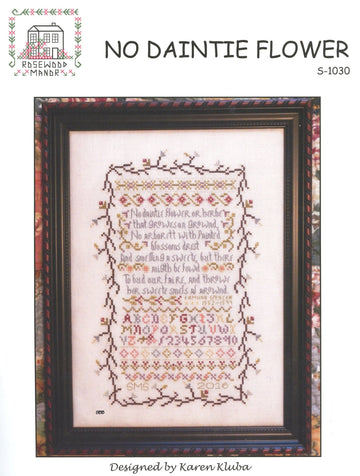 ROSEWOOD
MANOR
NO DAINTIE FLOWER
S-1030
No daintie flower or herbe
that growes on grownd,
No arborett with painted
blossoms drest
And smelling sweete, but there
might be fownd
To bud out faire, and throwe
her sweete smels al arownd.
EDMUND SPENSER
ABCDEFGHIJKL
MNOPQRSTUV
WXYZ1234567890
SMS 2016
Designed by Karen Kluba